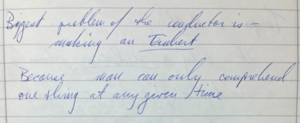 Biggest problem of the conductor is –
making an
Because man can only comprehend
one thing at any given time